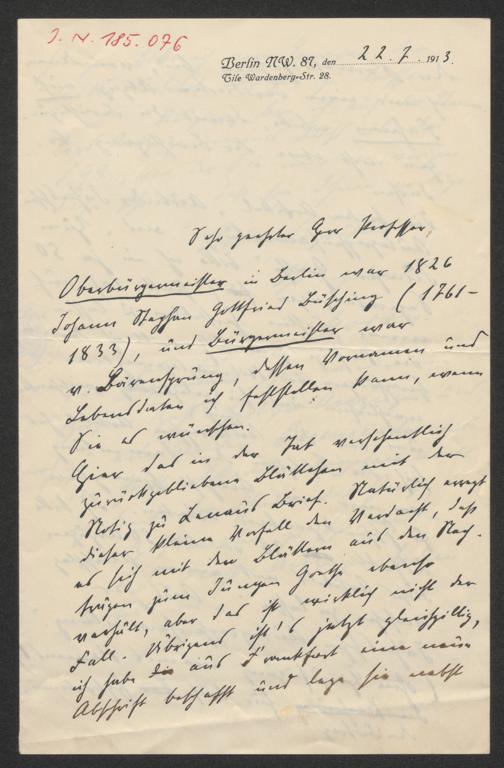 I. N. 185.076
Berlin NW. 87, den 22.7. 1913.
Tile Wardenberg-Str. 28.
Sehr geehrter Herr Professor,
Oberbürgermeister in Berlin war 1826
Johann Stephan Gottfried Büsching (1761–
1833), und Bürgermeister war
v. Bärensprung, dessen Vornamen und
Lebensdaten ich feststellen kann, wenn
Sie es wünschen.
Hier das in der Tat versehentlich
zurückgebliebene Blättchen mit der
Notiz zu Lenaus Brief. Natürlich erregt
dieser kleine Vorfall den Verdacht, daß
es sich mit den Blättern aus den Nach-
trägen zum Jungen Goethe ebenso
verhält, aber das ist wirklich nicht der
Fall. Übrigens ist's jetzt gleichgiltig,
ich habe die aus Frankfurt eine neue
Abschrift beschafft und lege sie nebst